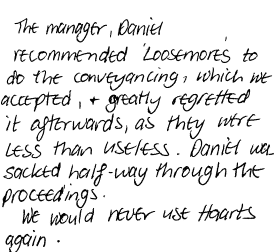 The manager, Daniel
recommended 'Loosemores' to
do the conveyancing, which we
accepted, + greatly regretted
it afterwards, as they were
less than useless. Daniel was
sacked half-way through the
proceedings.
We would never use Haarts
again.